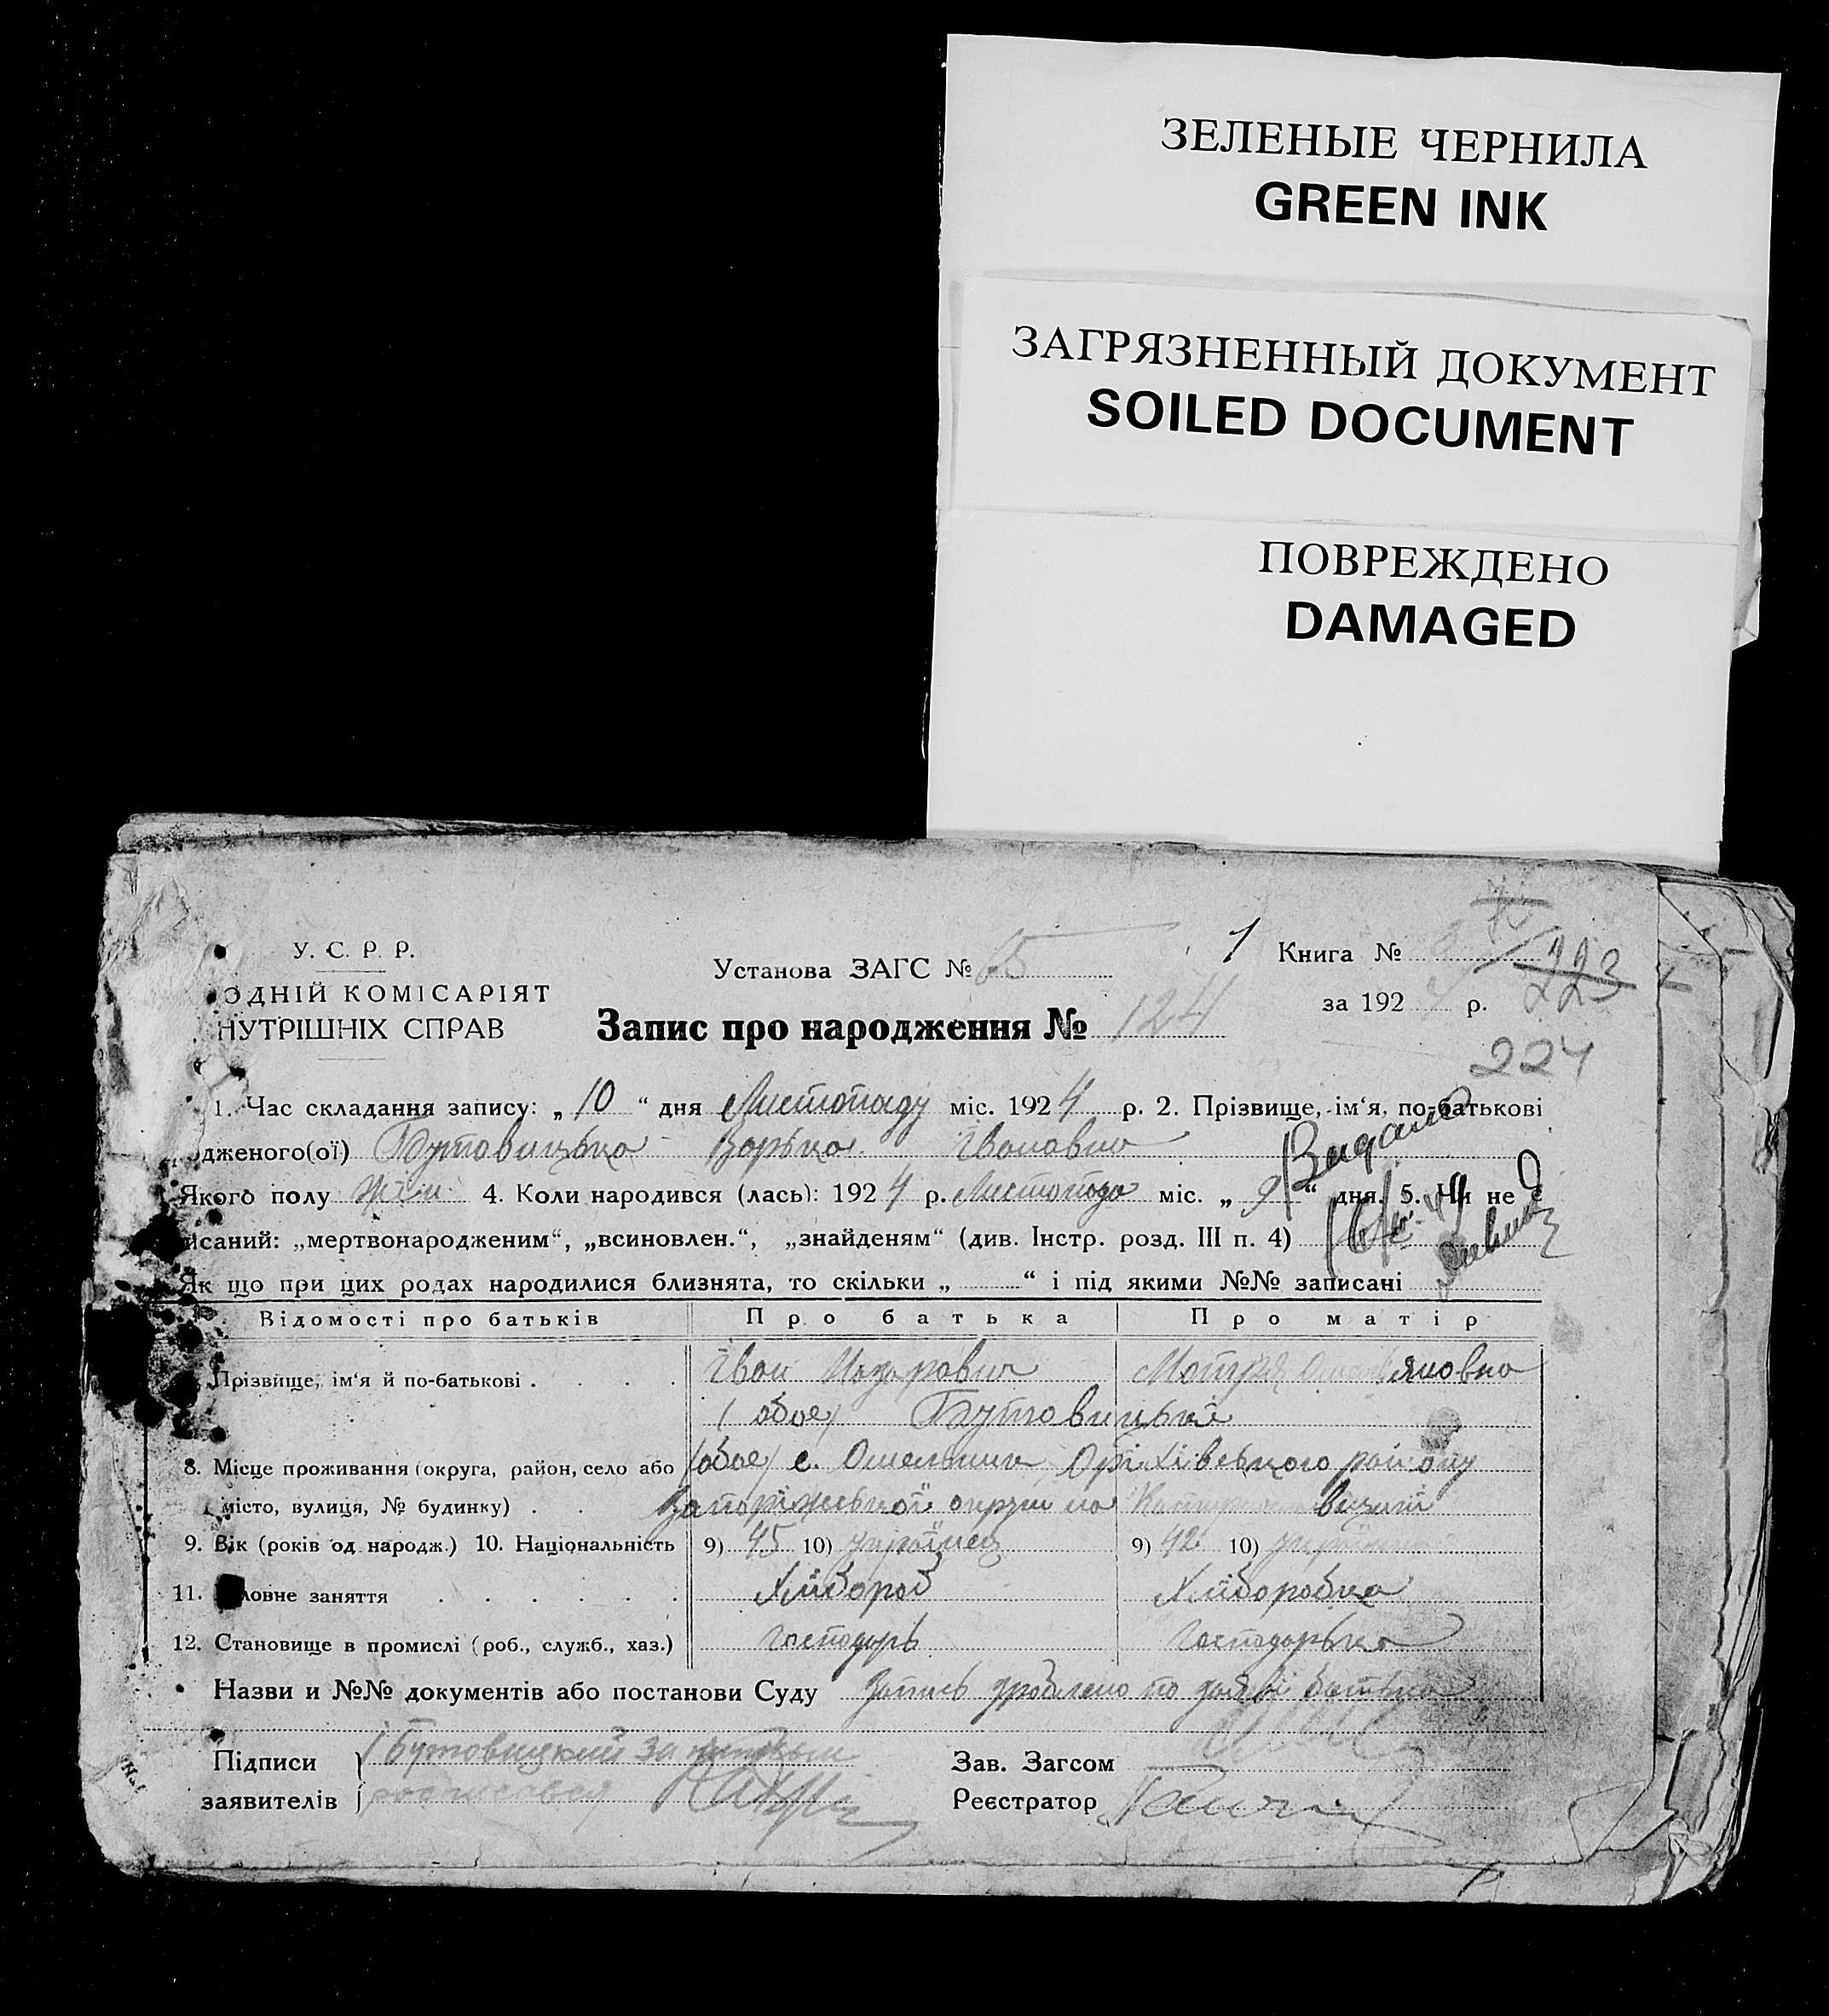 ЗЕЛЕНЫЕ ЧЕРНИЛА
GREEN INK
ЗАГРЯЗНЕННЫЙ ДОКУМЕНТ
SOILED DOCUMENT
ПОВРЕЖДЕНО
DAMAGED
У. С. Р. Р.
ОДНІЙ КОМІСАРІЯТ
НУТРІШНІХ СПРАВ
Установа ЗАГС № 65
1 Книга №
223
за 192 р.
Запис про народження № 124
224
1. Час складання запису: „ 10 “ дня Листопаду міс. 1924 р. 2. Прізвище, ім‘я, по-батькові
дженого(ої) Бутовицька Іванівна
Якого полу жін 4. Коли народився (лась): 1924 р. Листопада міс. „ 9 “ дня. 5. Чи не є
исаний: „мертвонародженим“, „всиновлен.“, „знайденям“ (див. Інстр. розд. III п. 4)
Як що при цих родах народилися близнята, то скільки „ “ і під якими №№ записані
Відомості про батьків Про батька Про матір
Прізвище, ім‘я й по-батькові Іван Назарович Мотря
(обоє) Бутовицькі
8. Місце проживання (округа, район, село або (обоє) с. Омельник Оріхівського району
місто, вулиця, № будинку) Запоріжської округи на
9. Вік (років од народж.) 10. Національність 9) 45 10) українец 9) 42 10)
11. ловне заняття Хлібороб Хліборобка
12. Становище в промислі (роб., служб., хаз.) господарь господарька
Назви и №№ документів або постанови Суду Запись зроблено по заяві батька
Підписи Бутовицкий за
заявителів
Зав. Загсом
Реєстратор